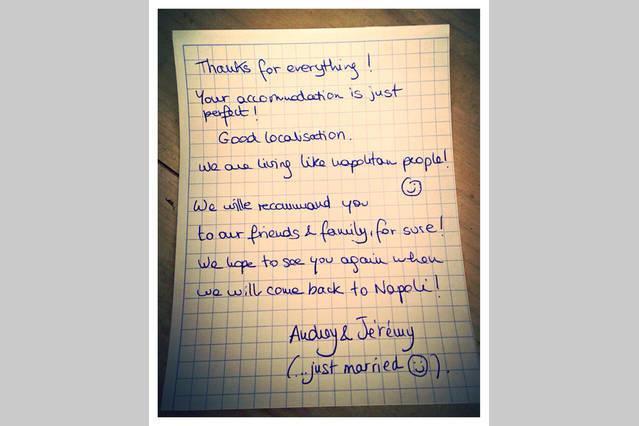 Thanks for everything !
Your accommodation is just
perfect !
Good localisation.
We are living like napolitan people!
We wille recommand you
to our friends & family, for sure!
We hope to see you again when
we will come back to Napoli !
Audrey & Jérémy
(...just married ☺).